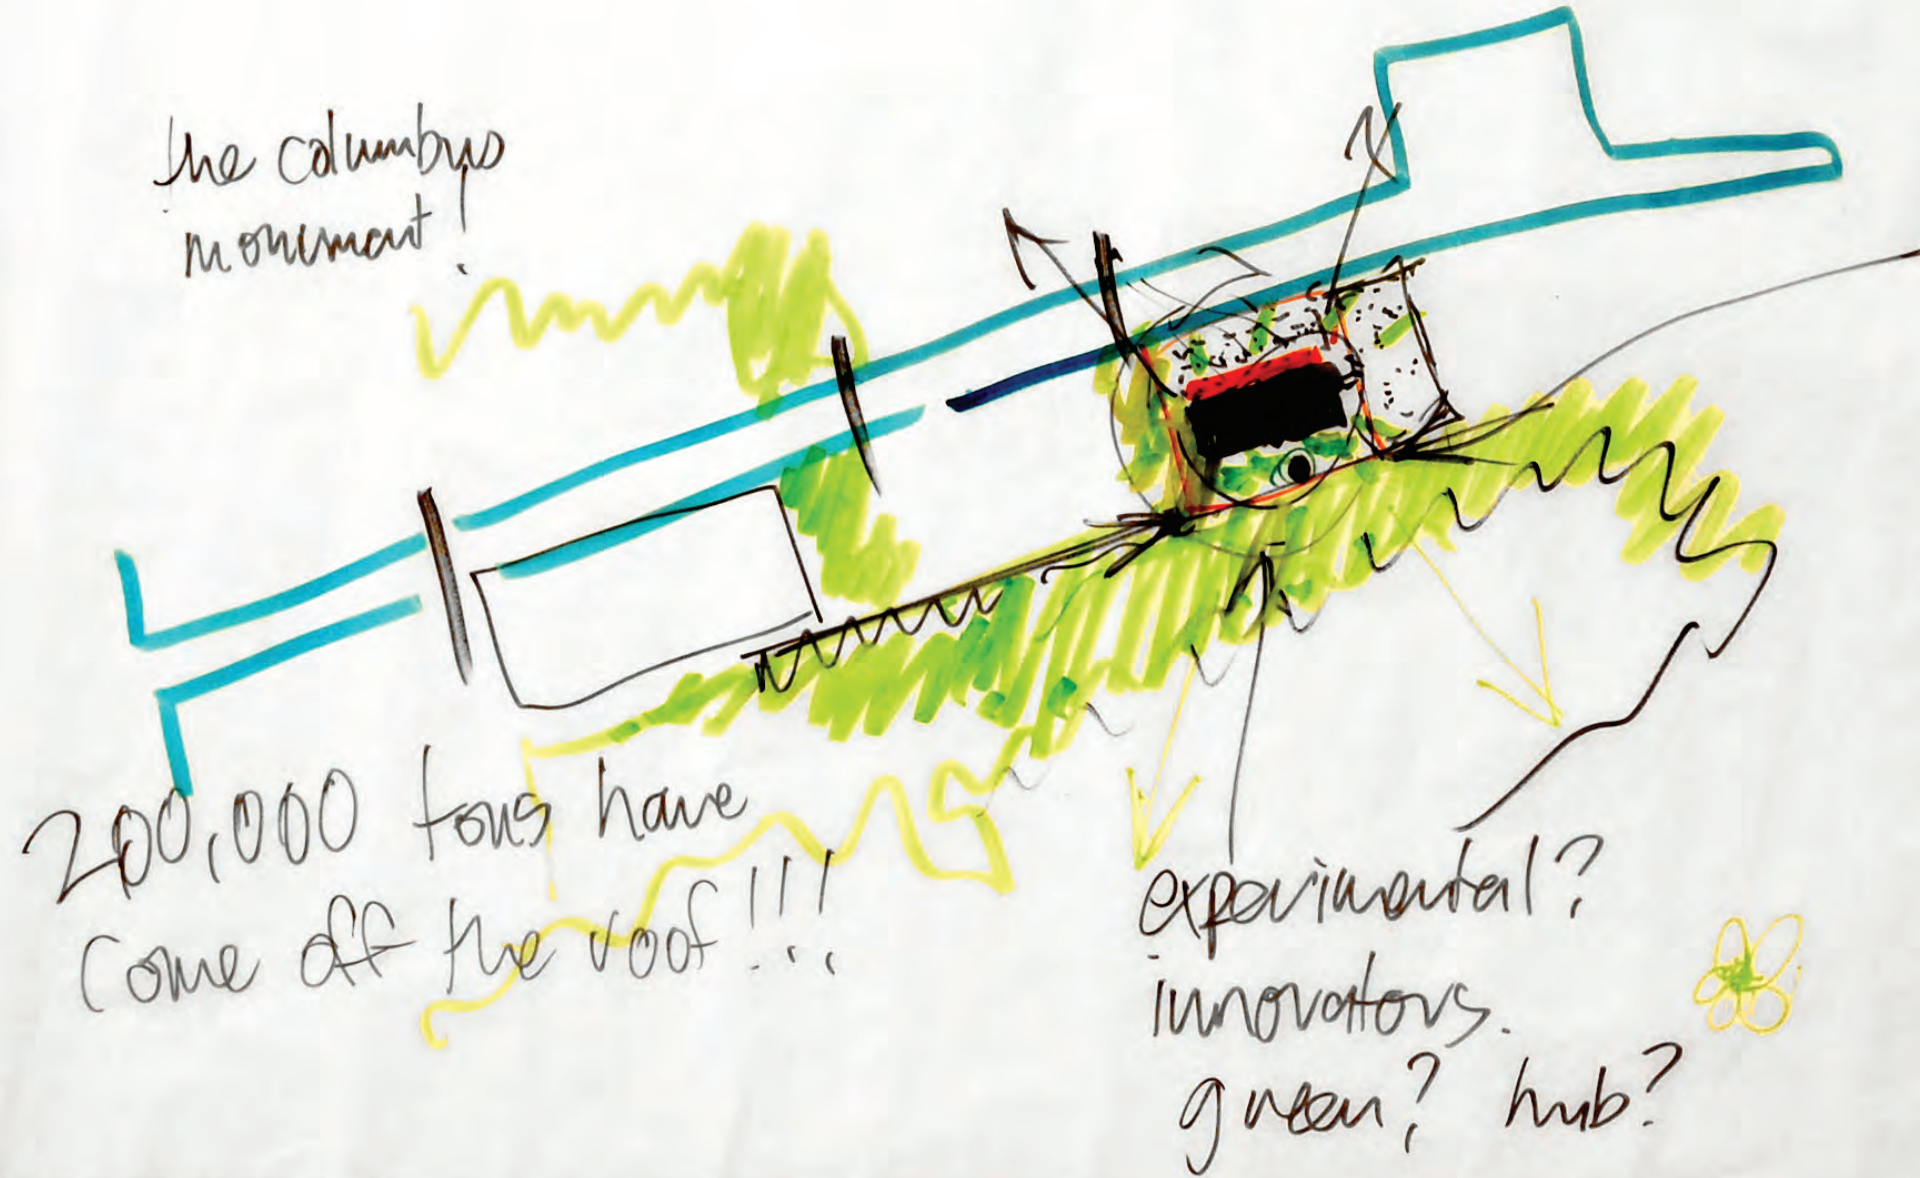 the columbus
monument!
200,000 tons have
come off the roof!!!
experimental?
innovators.
green? hub?